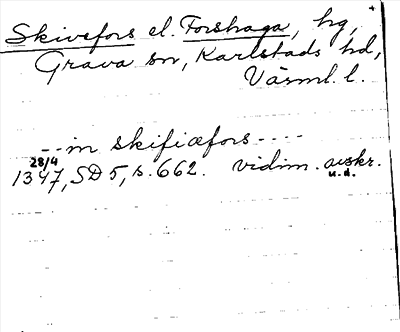 Skivefors el. Forshaga, hg,
Grava sn, Karlstads hd,
Värml. l.
--in skifiæfors----
28/4
1347, SD 5, s. 662. vidim. avskr.
u.d.